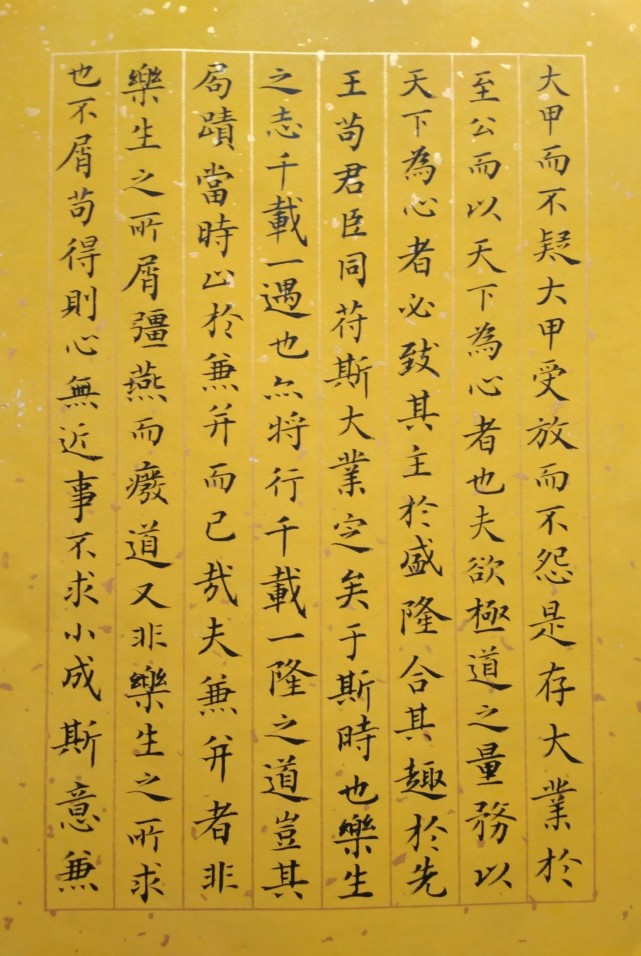 大甲而不疑大甲受放而不怨是存大業於
至公而以天下為心者也夫欲極道之量務以
天下為心者必致其主於盛隆合其趣於先
王苟君臣同符斯大業定矣于斯時也樂生
之志千載一遇也亦將行千載一隆之道豈其
局蹟當時止於兼并而已哉夫兼并者非
樂生之所屑彊燕而廢道又非樂生之所求
也不屑苟得則心無近事不求小成斯意兼